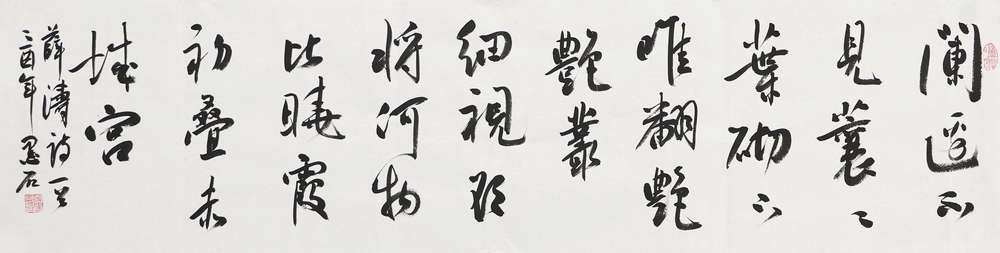 闌邊不
見蘘々
葉砌下
唯翻艷
艷叢
細視欲
將何物
比曉霞
初疊赤
城宮
薛濤詩一首
乙酉年 石